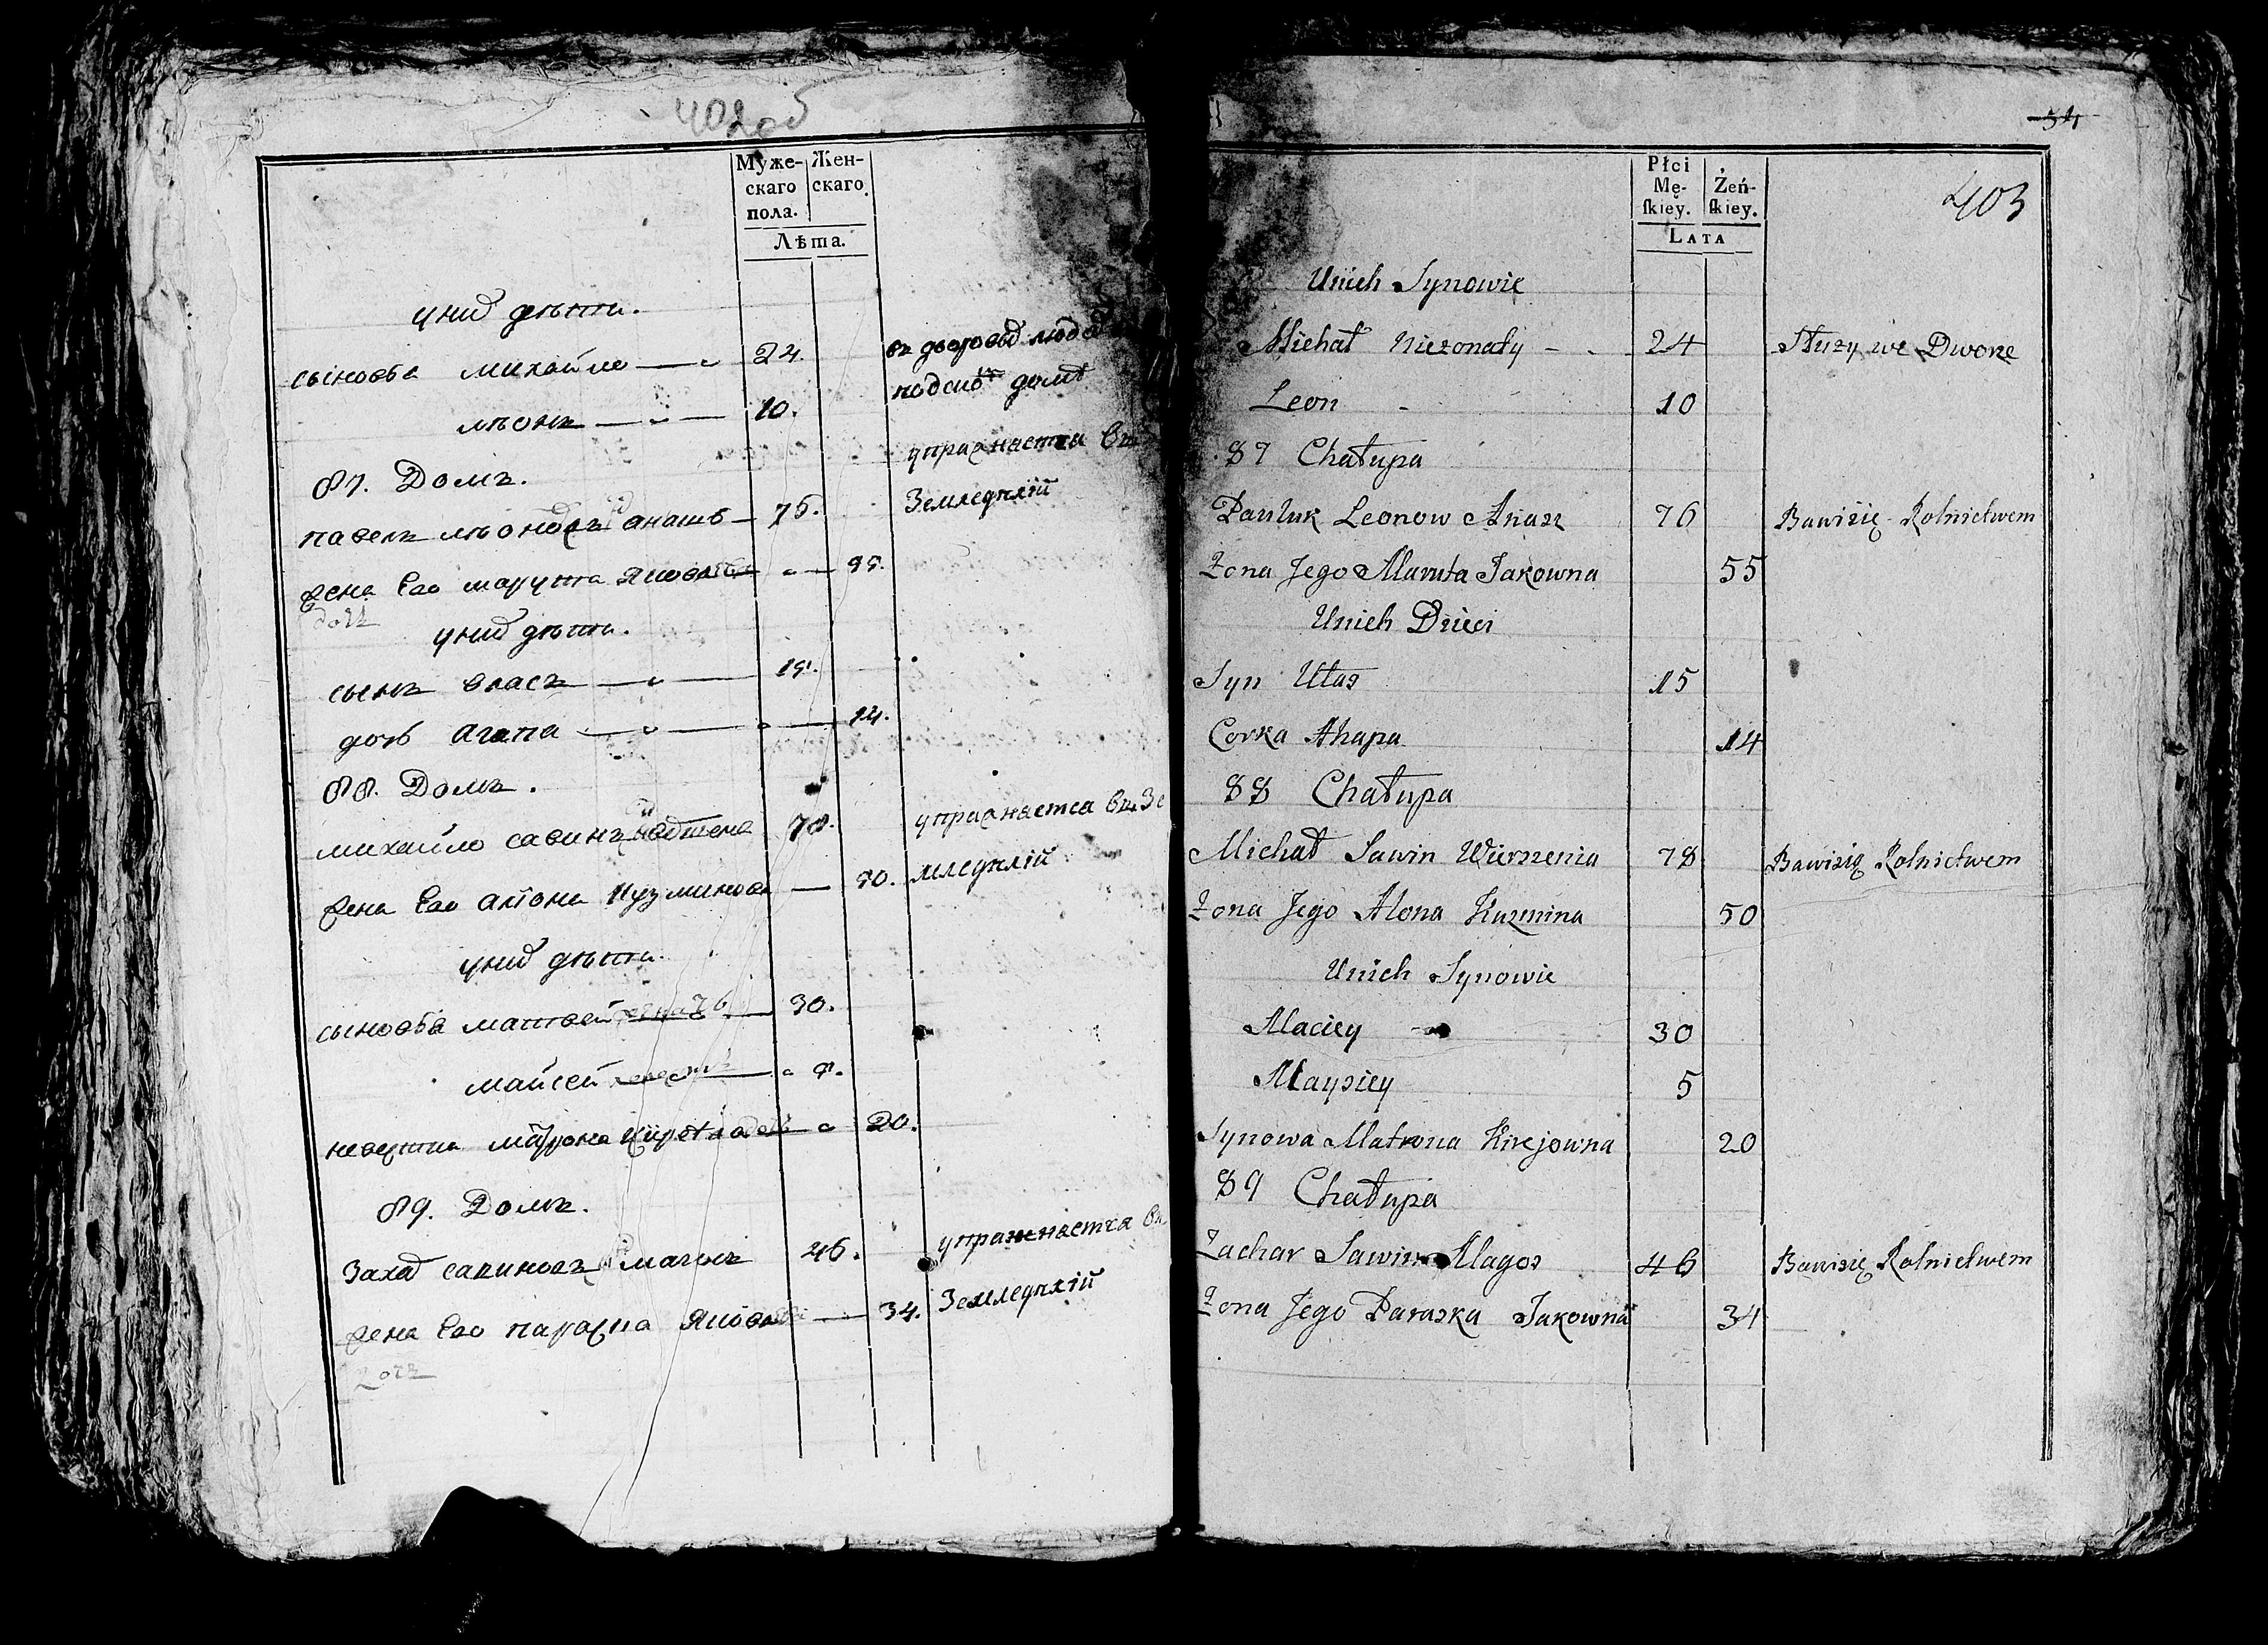 402об
Муже- Жен-
скаго скаго
пола.
Лѣта.
у них дѣти.
сыновья михайло 24. въ дворовых
леонъ 10. под сиб домѣ
87. Домъ. упражнается въ
павелъ анашъ 76. Земледѣлій
жена Ево марута Яковл 55.
у них дѣти.
сынъ власъ 15.
дочь агапа 14.
88. Домъ.
михайло савинъ 78. упражнается въ Зе
жена Ево алiона Кузминова 50. мледѣлій
у них дѣти.
сыновья матвей 30.
майсей 5.
невестка матрона 20.
89. Домъ.
Заха савиновъ магосъ 46. упражнается въ
жена Ево параска Яковл 34. Земледѣлій
54
403
Płci
Mę- Żeń-
ſkiey. ſkiey.
LATA
Unich Synowie
Michał Niezonaty 24 Służy we Dworze
Leon 10
87 Chałupa
Pawluk Leonow Anasz 76 Bawisię Rolnictwem
Żona Jego Maruta Jakowna 55
Unich Dzieci
Syn Ułas 15
Corka Ahapa 14
88 Chałupa
Michał Sawin Wierszenia 78 Bawisię Rolnictwem
Żona Jego Alona Kuzmina 50
Unich Synowie
Maciey 30
Maysiey 5
Synowa Matrona Kirejowna 20
89 Chałupa
Zachar Sawin Magos 46 Bawisię Rolnictwem
Żona Jego Paraska Jakowna 34